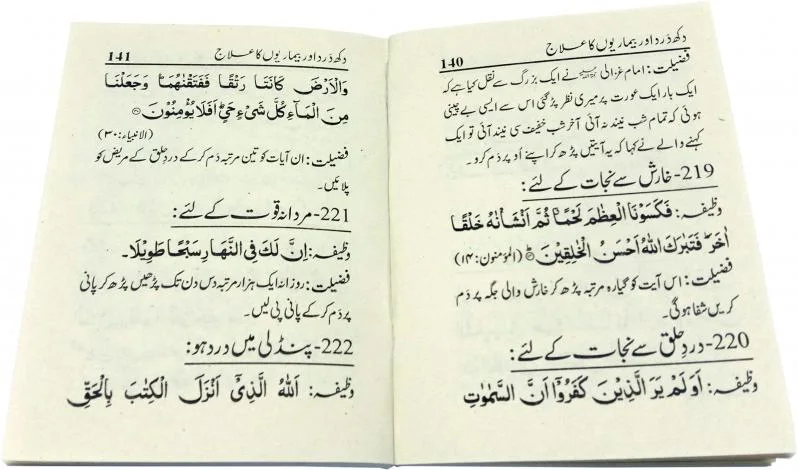 140 دکھ دَرد اور بیماریوں کا علاج
فضیلت: امام غزالی رحمۃ اللہ علیہ نے ایک بزرگ سے نقل کیا ہے کہ
ایک بار ایک عورت پر میری نظر پڑ گئی اس سے ایسی بے چینی
ہوئی کہ تمام شب نیند نہ آئی آخر شب خفیف سی نیند آئی تو ایک
کہنے والے نے کہا کہ یہ آیتیں پڑھ کر اپنے اُوپر دَم کرو۔
219-خارش سے نجات کے لئے:
وظیفہ: فَكَسَوْنَا الْعِظٰمَ لَحْمًا ثُمَّ اَنْشَاْنٰهُ خَلْقًا
اٰخَرَ ؕ فَتَبٰرَكَ اللّٰهُ اَحْسَنُ الْخٰلِقِیْنَ (المؤمنون:۱۴)
فضیلت: اس آیت کو گیارہ مرتبہ پڑھ کر خارش والی جگہ پر دَم
کریں شفا ہوگی۔
220-دردِ حلق سے نجات کے لئے:
وظیفہ: اَوَلَمْ یَرَ الَّذِیْنَ كَفَرُوْۤا اَنَّ السَّمٰوٰتِ
دکھ دَرد اور بیماریوں کا علاج 141
وَالْاَرْضَ كَانَتَا رَتْقًا فَفَتَقْنٰهُمَا ؕ وَجَعَلْنَا
مِنَ الْمَآءِ كُلَّ شَیْءٍ حَیٍّ ؕ اَفَلَا یُؤْمِنُوْنَ
(الانبیاء:۳۰)
فضیلت: ان آیات کو تین مرتبہ دَم کر کے دردِ حلق کے مریض کو
پلائیں۔
221-مردانہ قوت کے لئے:
وظیفہ: اِنَّ لَكَ فِی النَّهَارِ سَبْحًا طَوِیْلًا۔
فضیلت: روزانہ ایک ہزار مرتبہ دس دن تک پڑھیں پڑھ کر پانی
پر دَم کر کے پانی پی لیں۔
222-پنڈلی میں درد ہو:
وظیفہ: اَللّٰهُ الَّذِیْۤ اَنْزَلَ الْكِتٰبَ بِالْحَقِّ